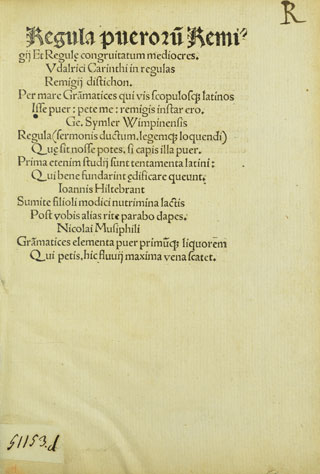 R
Regula puerorū Remi-
gij Et Regulę congruitatum mediocres.
Vdalrici Carinthi in regulas
Remigij distichon.
Per mare Grāmatices qui vis scopulosqȝ latinos
Isse puer: pete me: remigis instar ero.
Ge. Symler Wimpinensis
Regula (sermonis ductum, legemqȝ loquendi)
Quę sit, nosse potes, si capis illa puer.
Prima etenim studij sunt tentamenta latini:
Qui bene fundarint ędificare queunt.
Ioannis Hiltebrant
Sumite filioli modici nutrimina lactis
Post vobis alias rite parabo dapes.
Nicolai Musiphili
Grāmatices elementa puer primūqȝ liquorem
Qui petis, hic fluuij maxima vena scatet.
51153.d